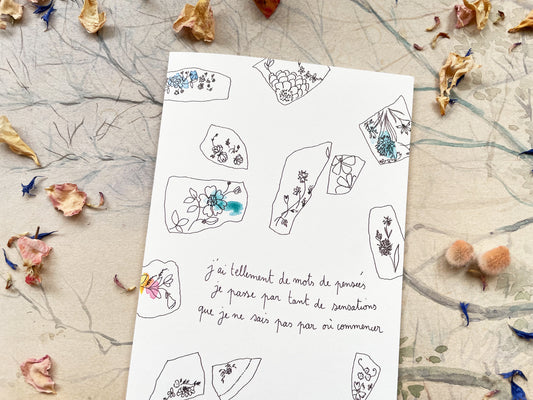 j'ai tellement de mots de pensées
je passe par tant de sensations
que je ne sais pas par où commencer